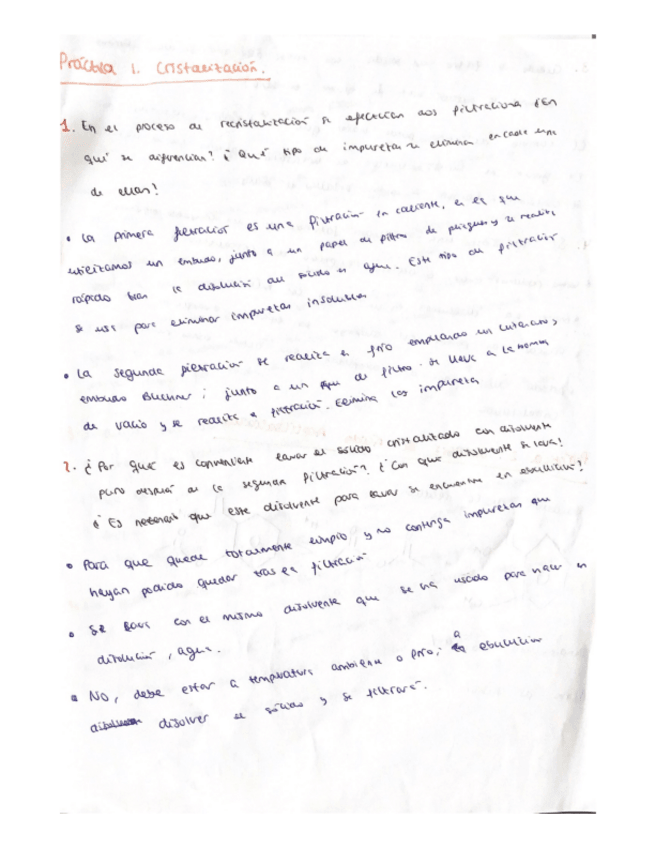 Práctica 1. Cristalización.
1. En el proceso de recristalización se efectúan dos filtraciones ¿En
qué se diferencian? ¿Qué tipo de impurezas se elimina en cada una
de ellas?
• La primera filtración es una filtración en caliente, en el que
utilizamos un embudo, junto a un papel de filtro de pliegues y se realiza
rápido la disolución del sólido en agua. Este tipo de filtración
se usa para eliminar impurezas insolubles
• La segunda filtración se realiza en frío empleando un
embudo Buchner; junto a un de filtro. Se lleva a la
de vacío y se realiza la filtración. Elimina las impurezas
2. ¿Por qué es conveniente lavar el sólido cristalizado con disolvente
puro después de la segunda filtración? ¿Con qué disolvente se lava?
¿Es necesario que este disolvente para lavar se encuentre en ebullición?
• Para que quede totalmente limpio y no contenga impurezas que
hayan podido quedar tras la filtración
• Se lava con el mismo disolvente que se ha usado para hacer la
disolución, agua.
• No, debe estar a temperatura ambiente o frío; a ebullición
disolver el sólido y se filtrará.